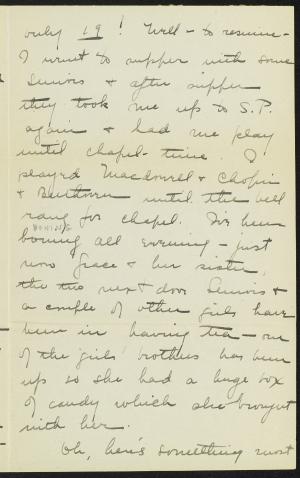 only 19! Well - to resume -
I went to supper with some
Seniors & after supper
they took me up to S.P.
again & had me play
until chapel-time. I
played MacDowell & Chopin
& Beethoven until the bell
rang for chapel. I've been
boning all evening - just
BONING
now Grace & her sister,
the two next door Seniors &
a couple of other girls have
been in having tea - one
of the girls' brothers has been
up so she had a huge box
of candy which she brought
with her.
Oh, here's something most